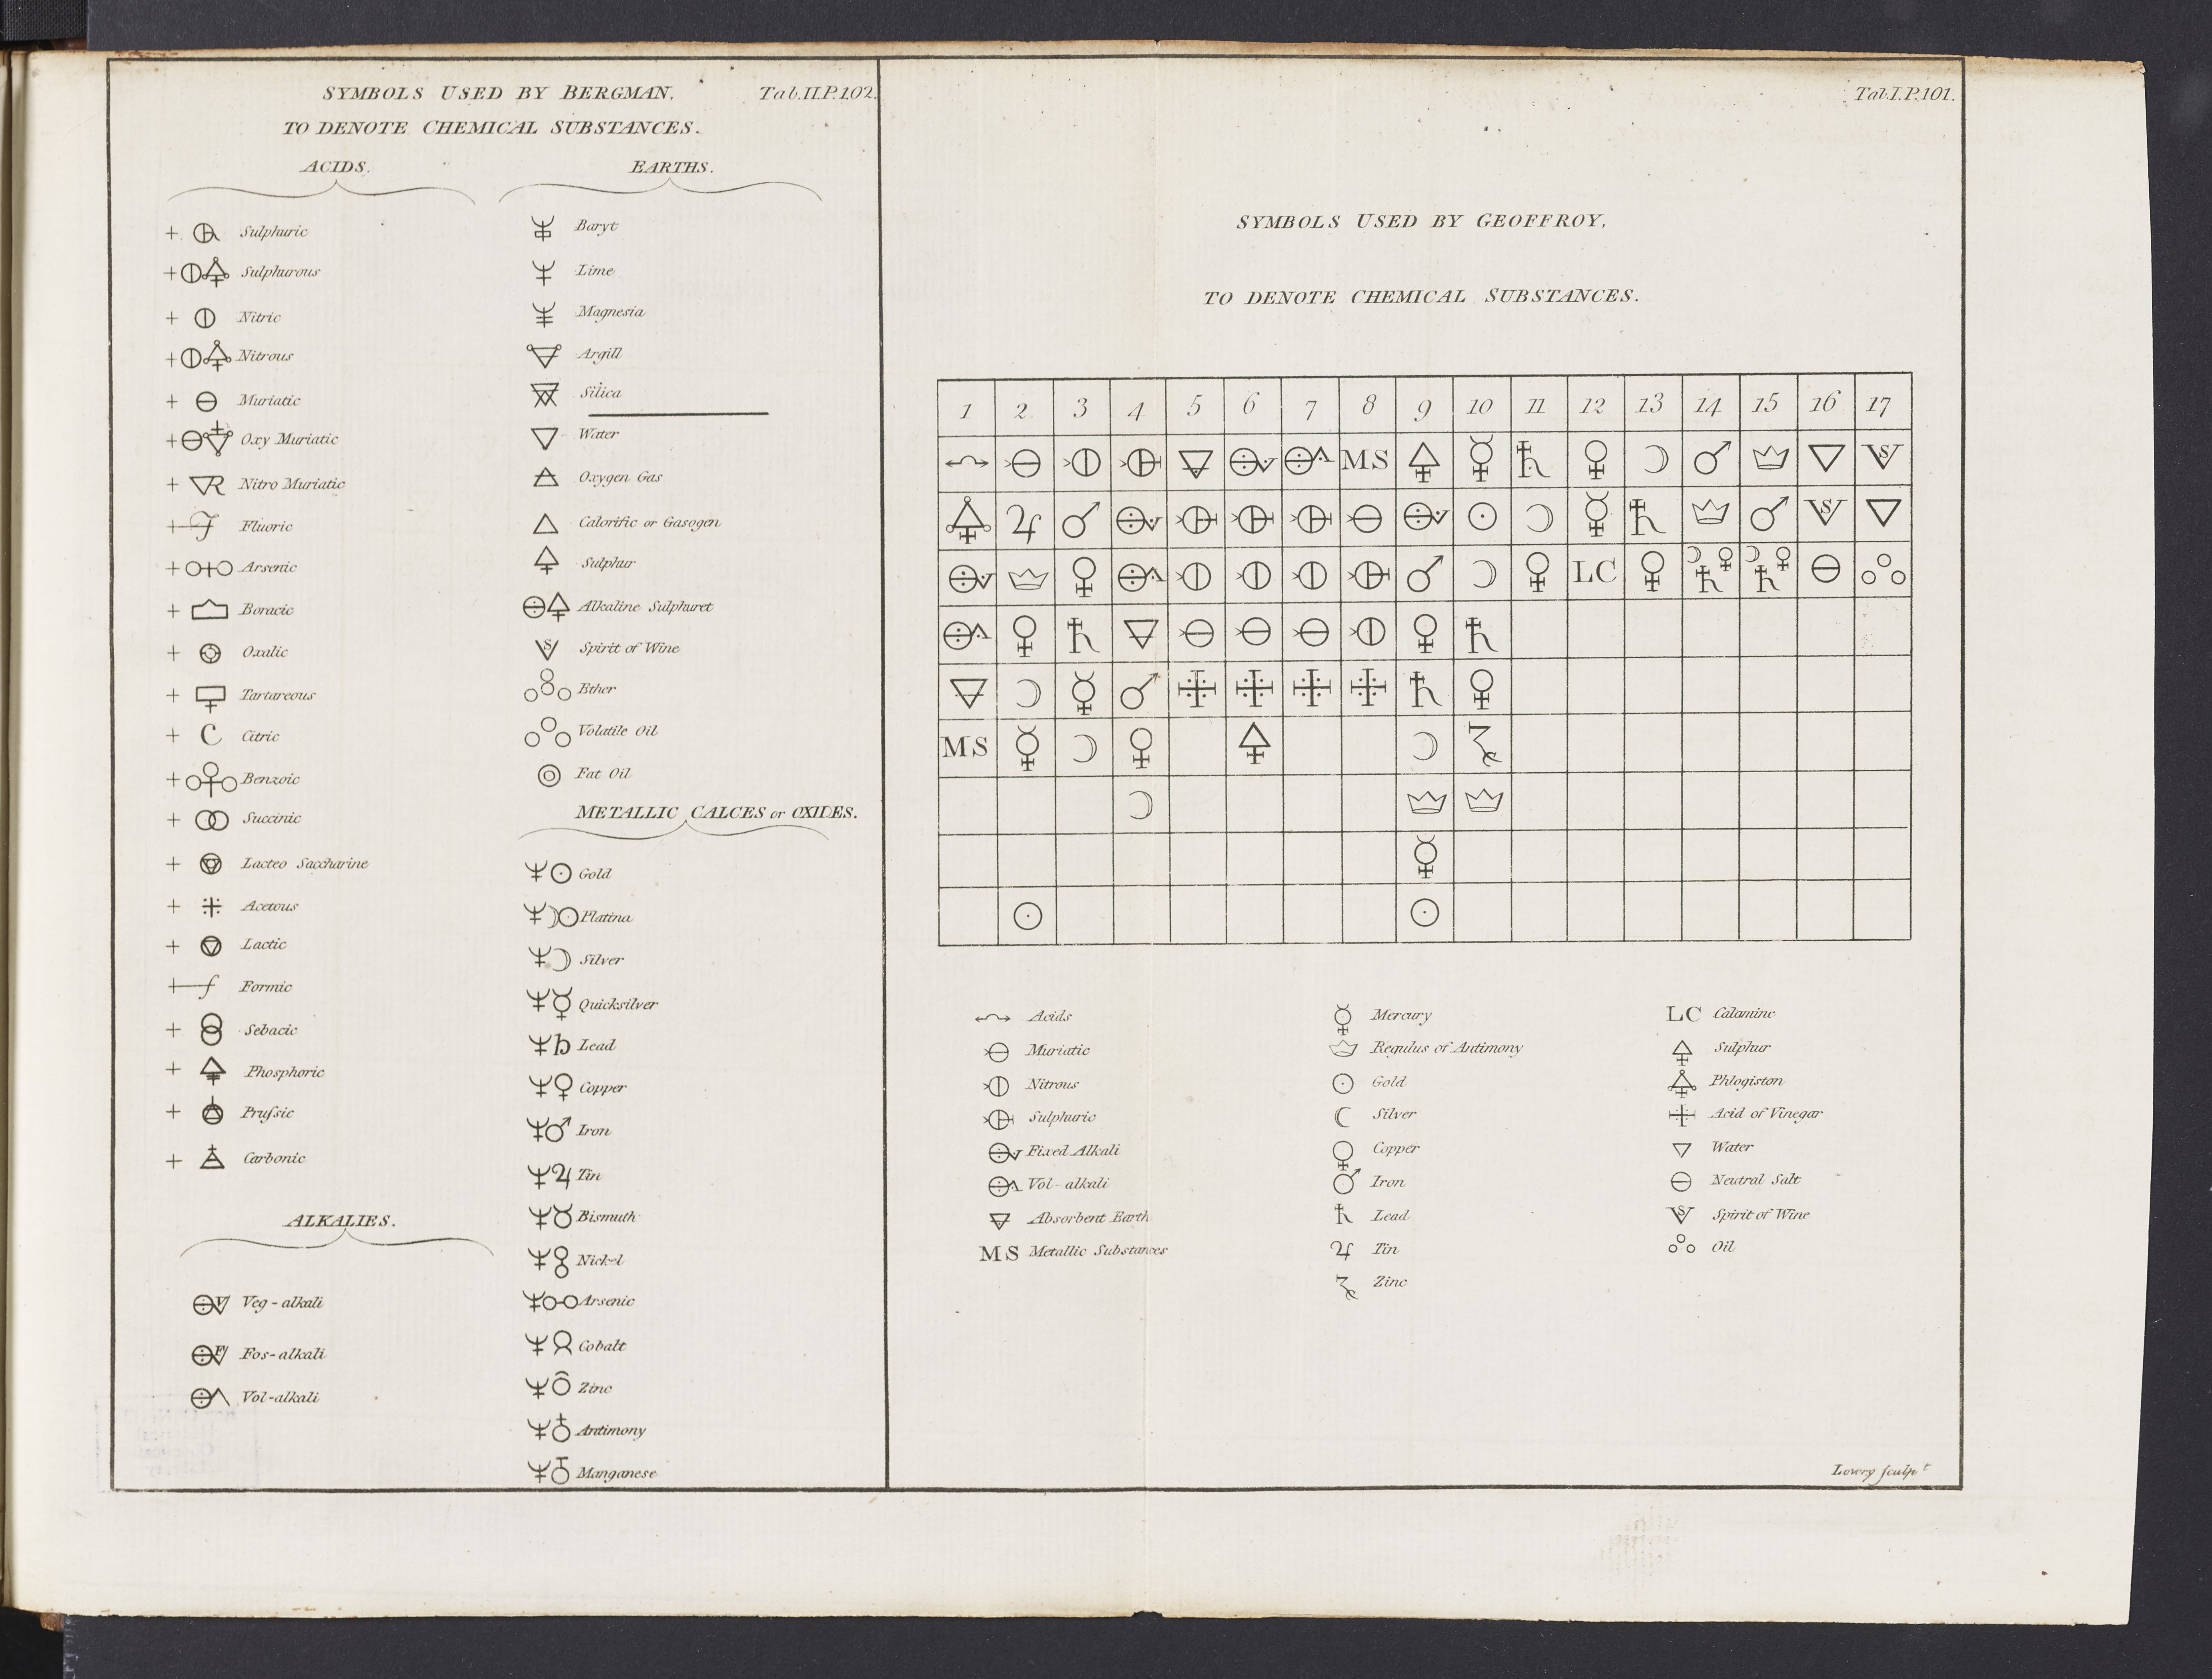 SYMBOLS USED BY BERGMAN. Tab.II.P.102.
TO DENOTE CHEMICAL SUBSTANCES.
ACIDS.
Sulphuric
Sulphurous
Nitric
Nitrous
Muriatic
Oxy Muriatic
Nitro Muriatic
Fluoric
Arsenic
Boracic
Oxalic
Tartareous
Citric
Benzoic
Succinic
Lacteo Saccharine
Acetous
Lactic
Formic
Sebacic
Phosphoric
Pruſsic
Carbonic
ALKALIES.
Veg-alkali
Fos-alkali
Vol-alkali
EARTHS.
Baryt
Lime
Magnesia
Argill
Silica
Water
Oxygen Gas
Calorific or Gasogen
Sulphur
Alkaline Sulphuret
Spirit of Wine
Ether
Volatile Oil
Fat Oil
METALLIC CALCES or OXIDES.
Gold
Platina
Silver
Quicksilver
Lead
Copper
Iron
Tin
Bismuth
Nickel
Arsenic
Cobalt
Zinc
Antimony
Manganese
Tab.I.P.101.
SYMBOLS USED BY GEOFFROY,
TO DENOTE CHEMICAL SUBSTANCES.
1 2 3 4 5 6 7 8 9 10 11 12 13 14 15 16 17
MS
LC
MS
Acids
Muriatic
Nitrous
Sulphuric
Fixed Alkali
Vol-alkali
Absorbent Earth
MS Metallic Substances
Mercury
Regulus of Antimony
Gold
Silver
Copper
Iron
Lead
Tin
Zinc
LC Calamine
Sulphur
Phlogiston
Acid of Vinegar
Water
Neutral Salt
Spirit of Wine
Oil
Lowry sculpt